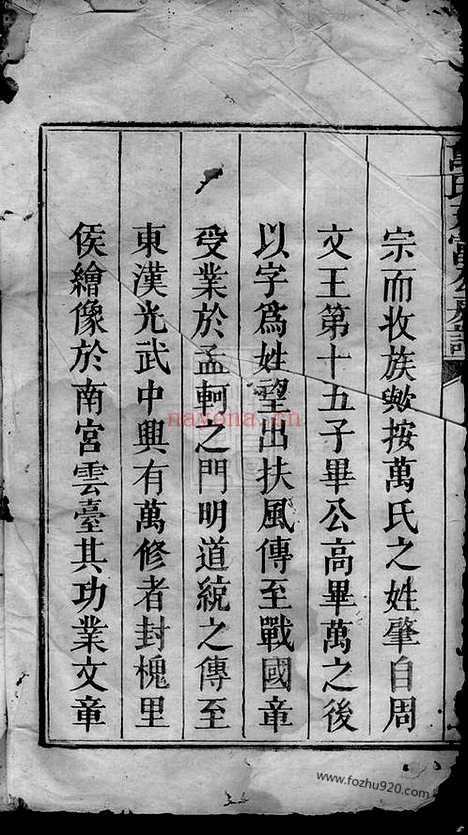 宗而收族歟按萬氏之姓肇自周
文王第十五子畢公高畢萬之後
以字爲姓望出扶風傳至戰國章
受業於孟軻之門明道統之傳至
東漢光武中興有萬修者封槐里
侯繪像於南宮雲臺其功業文章
nayona.cn
www.fozhu920.com